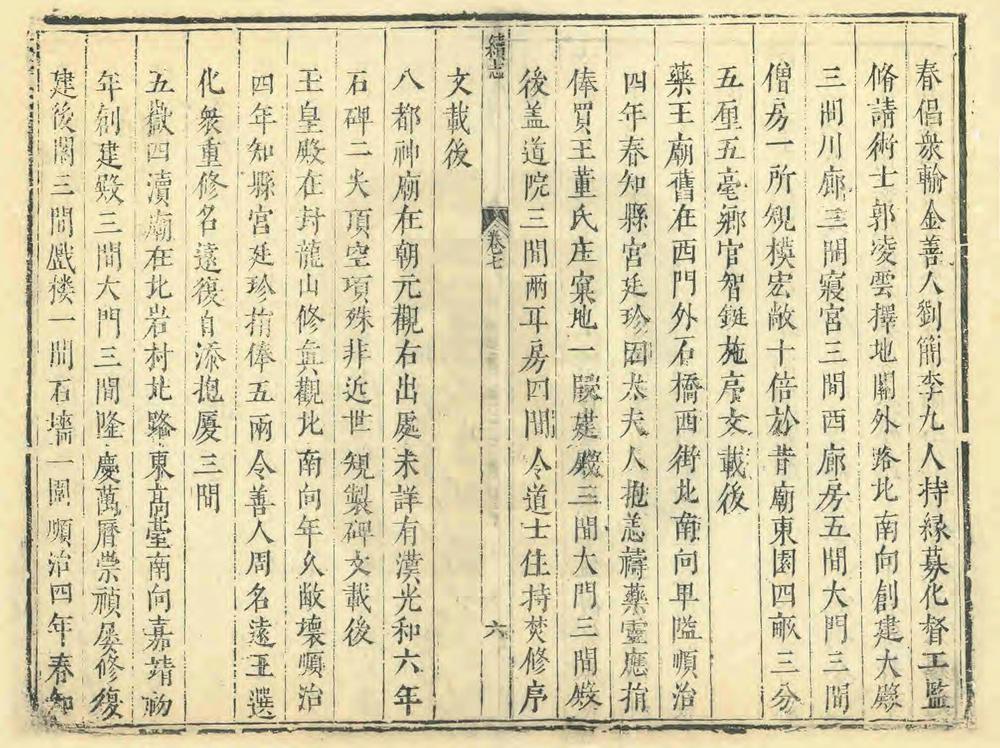 春倡衆輸金善人劉簡李九人持緣募化督工監
脩請術士郭凌雲擇地關外路北南向創建大殿
三間川廊三間寢宮三間西廊房五間大門三間
僧房一所規模宏敞十倍於昔廟東園四畝三分
五厘五毫鄉官智鋌施序文載後
藥王廟舊在西門外石橋西街北南向卑隘順治
四年春知縣宮廷珍因太夫人抱恙禱藥靈應捐
俸買王董氏庄窠地一叚建殿三間大門三間殿
後盖道院三間兩耳房四間令道士住持焚修序
文載後
續志
卷七
六
八都神廟在朝元觀右出處未詳有漢光和六年
石碑二尖頂空項殊非近世規製碑文載後
玉皇殿在封龍山修眞觀北南向年久敝壞順治
四年知縣宮廷珍捐俸五兩令善人周名遠王選
化衆重修名遠復自添抱厦三間
五嶽四瀆廟在北岩村北路東高臺南向嘉靖初
年創建殿三間大門三間隆慶萬曆崇禎屢修復
建後閣三間戲楼一間石墻一圍順治四年春知